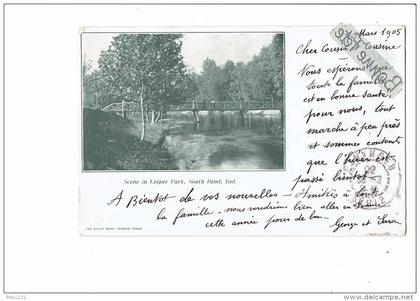 Mars 1905
Cher Cousin Cousine
Nous espérons que
toute la famille
est en bonne santé,
pour nous, tout
marche à peu près
et sommes contents
que l'hiver est
passé bientôt -
Scene in Leeper Park, South Bend, Ind.
A Bientôt de vos nouvelles - Amitiés à toute
la famille - nous voudrions bien aller en
cette année pour de bon -
George et
THE SOUTH BEND TRIBUNE PRESS.